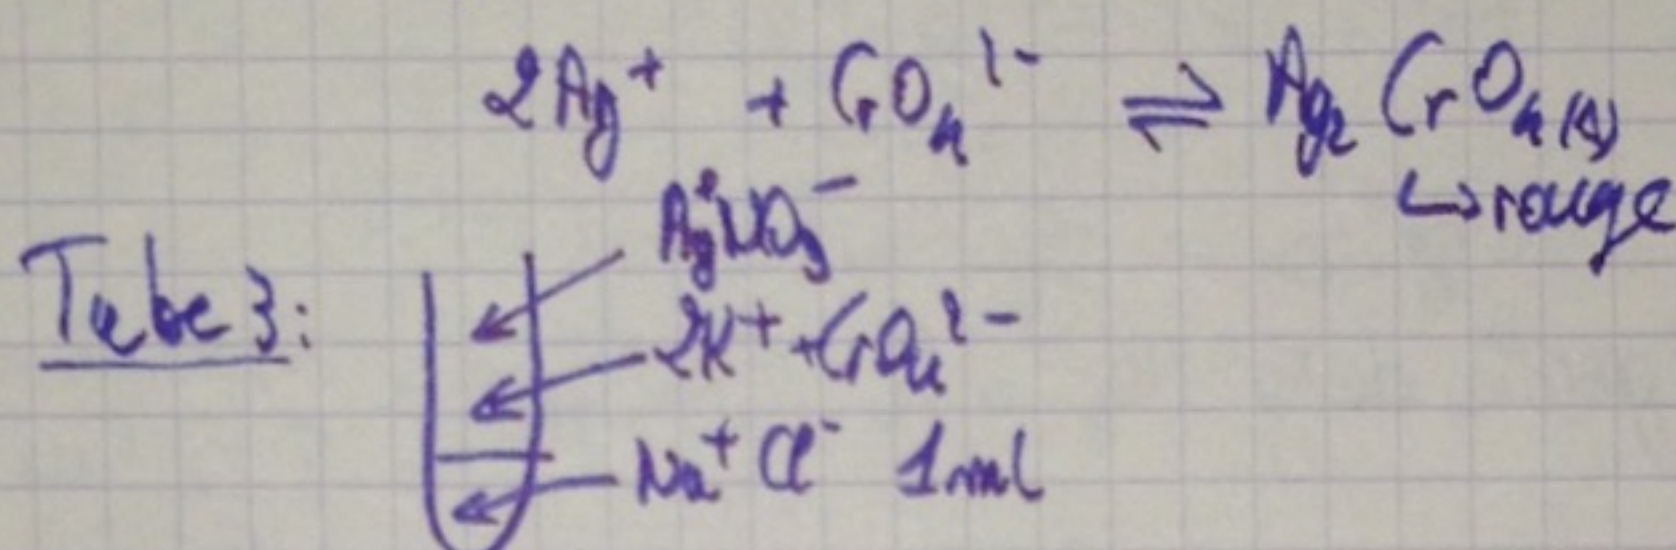 2Ag⁺ + CrO₄²⁻ ⇌ Ag₂CrO₄(s)
↳ rouge
Ag⁺NO₃⁻
Tube 3:
2K⁺ + CrO₄²⁻
Na⁺ Cl⁻ 1ml